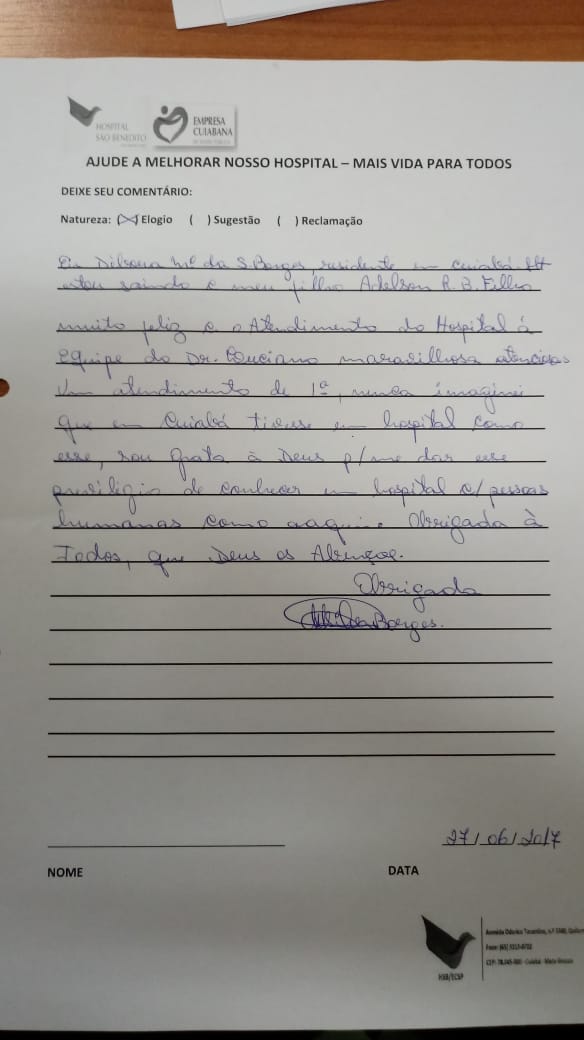 HOSPITAL
SÃO BENEDITO
EMPRESA
CUIABANA
AJUDE A MELHORAR NOSSO HOSPITAL – MAIS VIDA PARA TODOS
DEIXE SEU COMENTÁRIO:
Natureza: (X) Elogio ( ) Sugestão ( ) Reclamação
Eu Dilsana Mª da S Borges, residente em Cuiabá-Mt
estou saindo e meu filho Adelson R. B. Filho
muito feliz c o Atendimento do Hospital à
Equipe do Dr. Luciano maravilhosa atenciosas
Um atendimento de 1ª, nunca imaginei
que em Cuiabá tivesse um hospital como
esse, sou Grata à Deus p/ me dar esse
previlégio de conhecer um hospital c/ pessoas
humanas como aaqui. Obrigada à
Todos, que Deus os Abençoe.
Obrigada
Borges.
27/06/2017
NOME DATA
HSB/ECSP